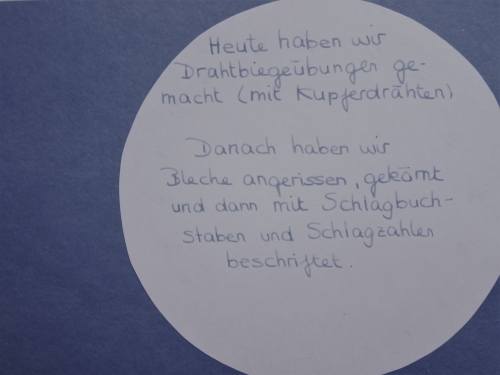 Heute haben wir
Drahtbiegeübungen ge-
macht (mit Kupferdrähten)
Danach haben wir
Bleche angerissen, gekörnt
und dann mit Schlagbuch-
staben und Schlagzahlen
beschriftet.